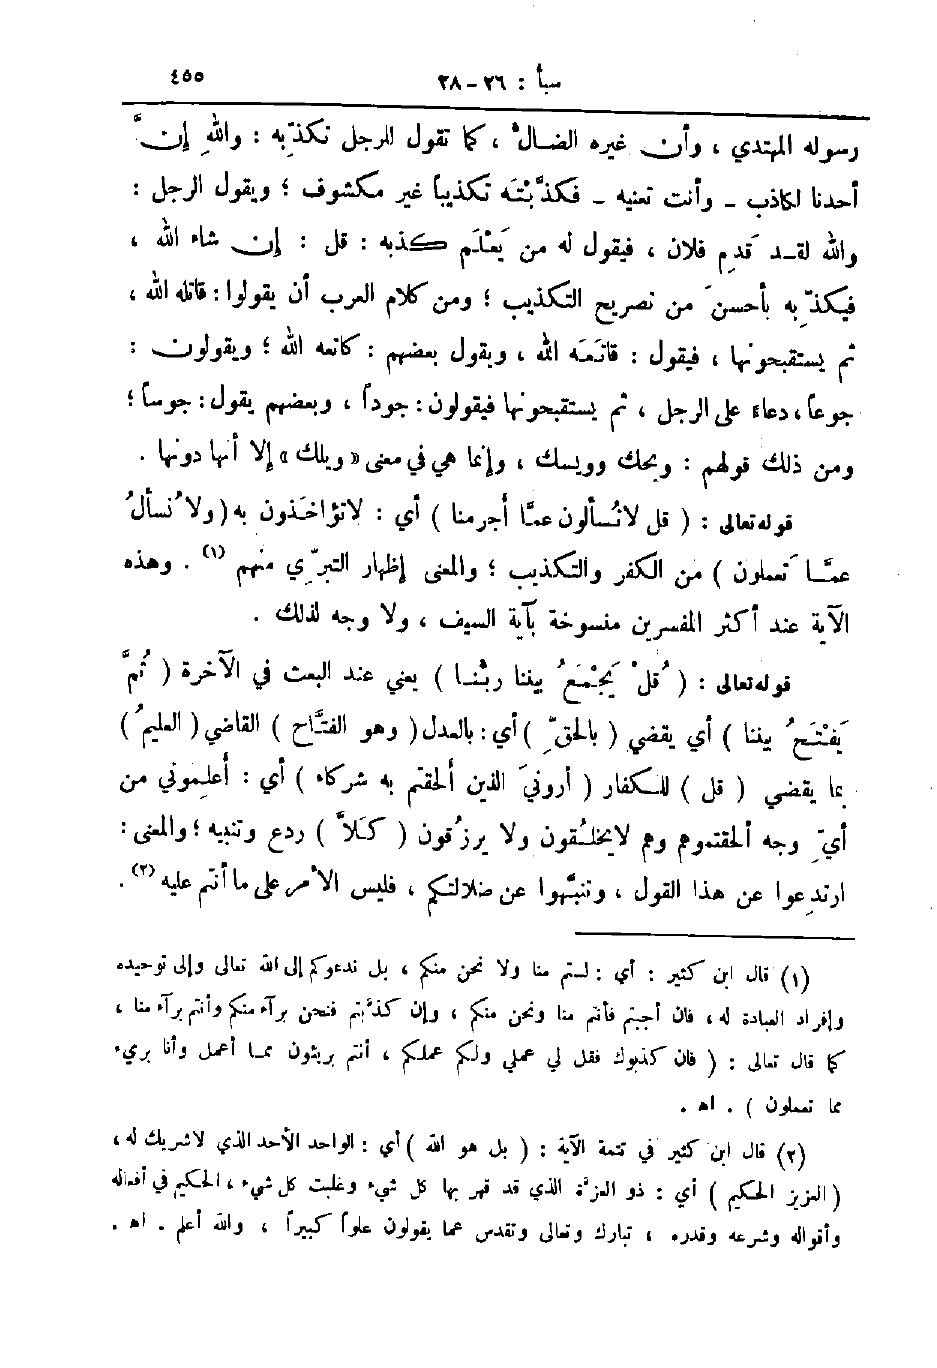 سبأ : ٢٦ - ٢٨
٤٥٥
رسوله المهتدي ، وأن غيره الضال ، كما تقول للرجل تكذّبه : واللهِ إن
أحدنا لكاذب - وأنت تعنيه - فكذَّبْتَه تكذيباً غير مكشوف ؛ ويقول الرجل :
والله لقد قَدِم فلان ، فيقول له من يَعْلَم كذبه : قل : إن شاء الله ،
فيكذّبه بأحسنَ من تصريح التكذيب ؛ ومن كلام العرب أن يقولوا : قاتله الله ،
ثم يستقبحونها ، فيقول : قاتَعَه الله ، ويقول بعضهم : كاتعه الله ؛ ويقولون :
جوعاً ، دعاء على الرجل ، ثم يستقبحونها فيقولون : جوداً ، وبعضهم يقول : جوساً ؛
ومن ذلك قولهم : ويحك وويسك ، وإنما هي في معنى « ويلك » إلا أنها دونها .
قوله تعالى : ( قل لا تُسألون عمَّا أجرمنا ) أي : لا تؤاخَذون به ( ولا نُسألُ
عمَّا تَعملون ) من الكفر والتكذيب ؛ والمعنى إظهار التبرّي منهم (١) . وهذه
الآية عند أكثر المفسرين منسوخة بآية السيف ، ولا وجه لذلك .
قوله تعالى : ( قُلْ يَجْمَعُ بيننا ربُّنا ) يعني عند البعث في الآخرة ( ثُمَّ
يَفْتَحُ بيننا ) أي يقضي ( بالحقِّ ) أي : بالعدل ( وهو الفتَّاح ) القاضي ( العليمُ )
بما يقضي ( قل ) للكفار ( أرونيَ الذين ألحقتم به شركاء ) أي : أعلِموني من
أيِّ وجه ألحقتموهم وهم لا يخلُقون ولا يرزُقون ( كَلاَّ ) ردع وتنبيه ؛ والمعنى :
ارتدِعوا عن هذا القول ، وتنبَّهوا عن ضلالتكم ، فليس الأمر على ما أنتم عليه (٢) .
(١) قال ابن كثير : أي : لستم منا ولا نحن منكم ، بل ندعوكم إلى الله تعالى وإلى توحيده
وإفراد العبادة له ، فان أجبتم فأنتم منا ونحن منكم ، وإن كذَّبتم فنحن برآء منكم وأنتم برآء منا ،
كما قال تعالى : ( فان كذبوك فقل لي عملي ولكم عملكم ، أنتم بريئون مما أعمل وأنا بريء
مما تعملون ) . اه .
(٢) قال ابن كثير في تتمة الآية : ( بل هو الله ) أي : الواحد الأحد الذي لا شريك له ،
( العزيز الحكيم ) أي : ذو العزة الذي قد قهر بها كل شيء وغلبت كل شيء ، الحكيم في أفعاله
وأقواله وشرعه وقدره ، تبارك وتعالى وتقدس عما يقولون علواً كبيراً ، والله أعلم . اه .